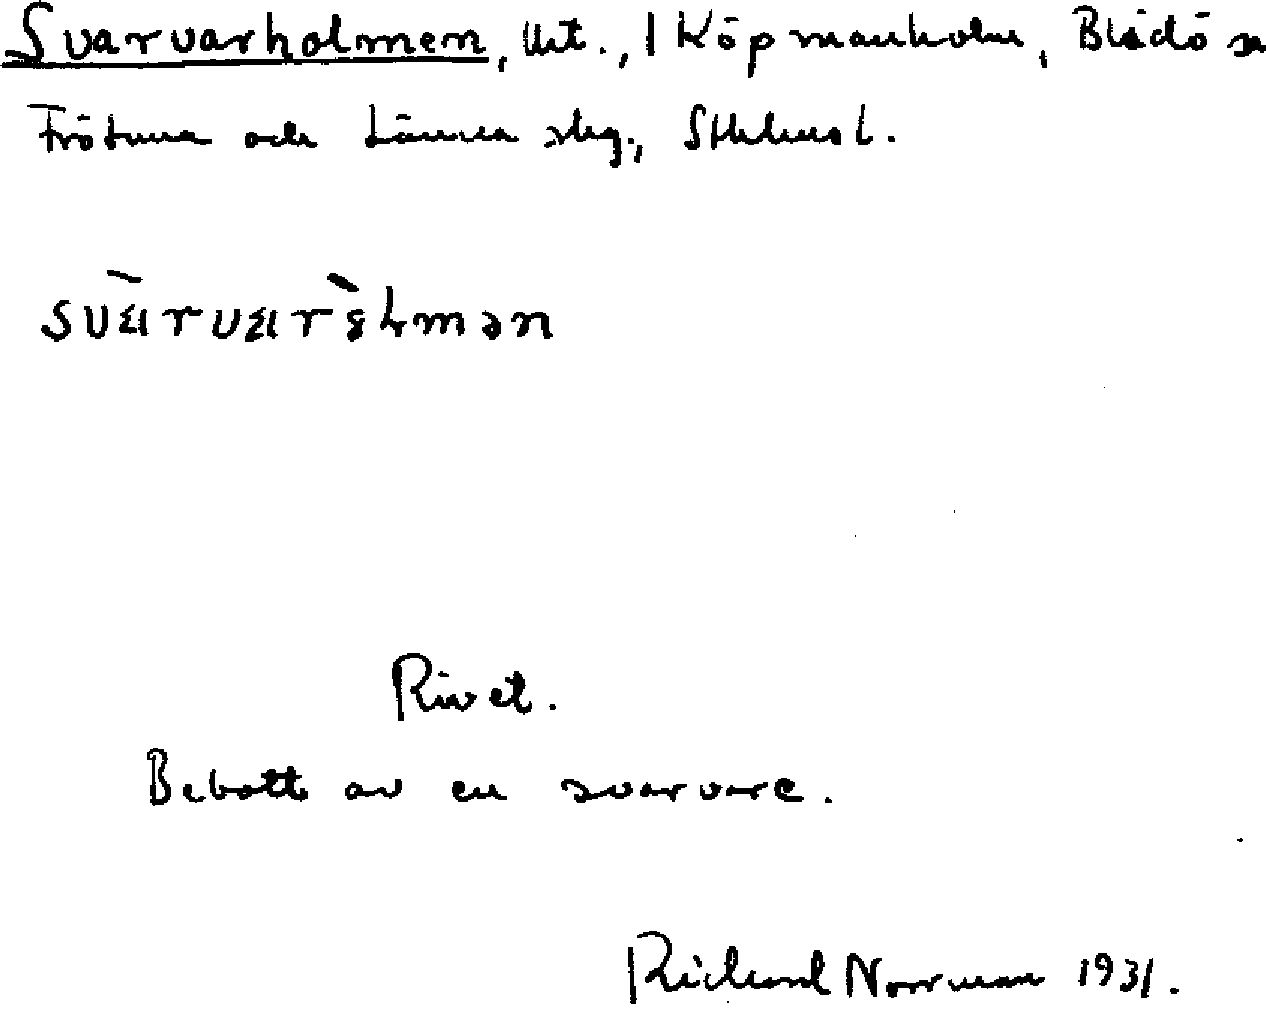 Svarvarholmen, lht., 1 Köpmanholm, Blidö sn
Frötuna och Länna slg., Sthlms l.
Rivet.
Bebott av en svarvare.
Richard Norrman 1931.